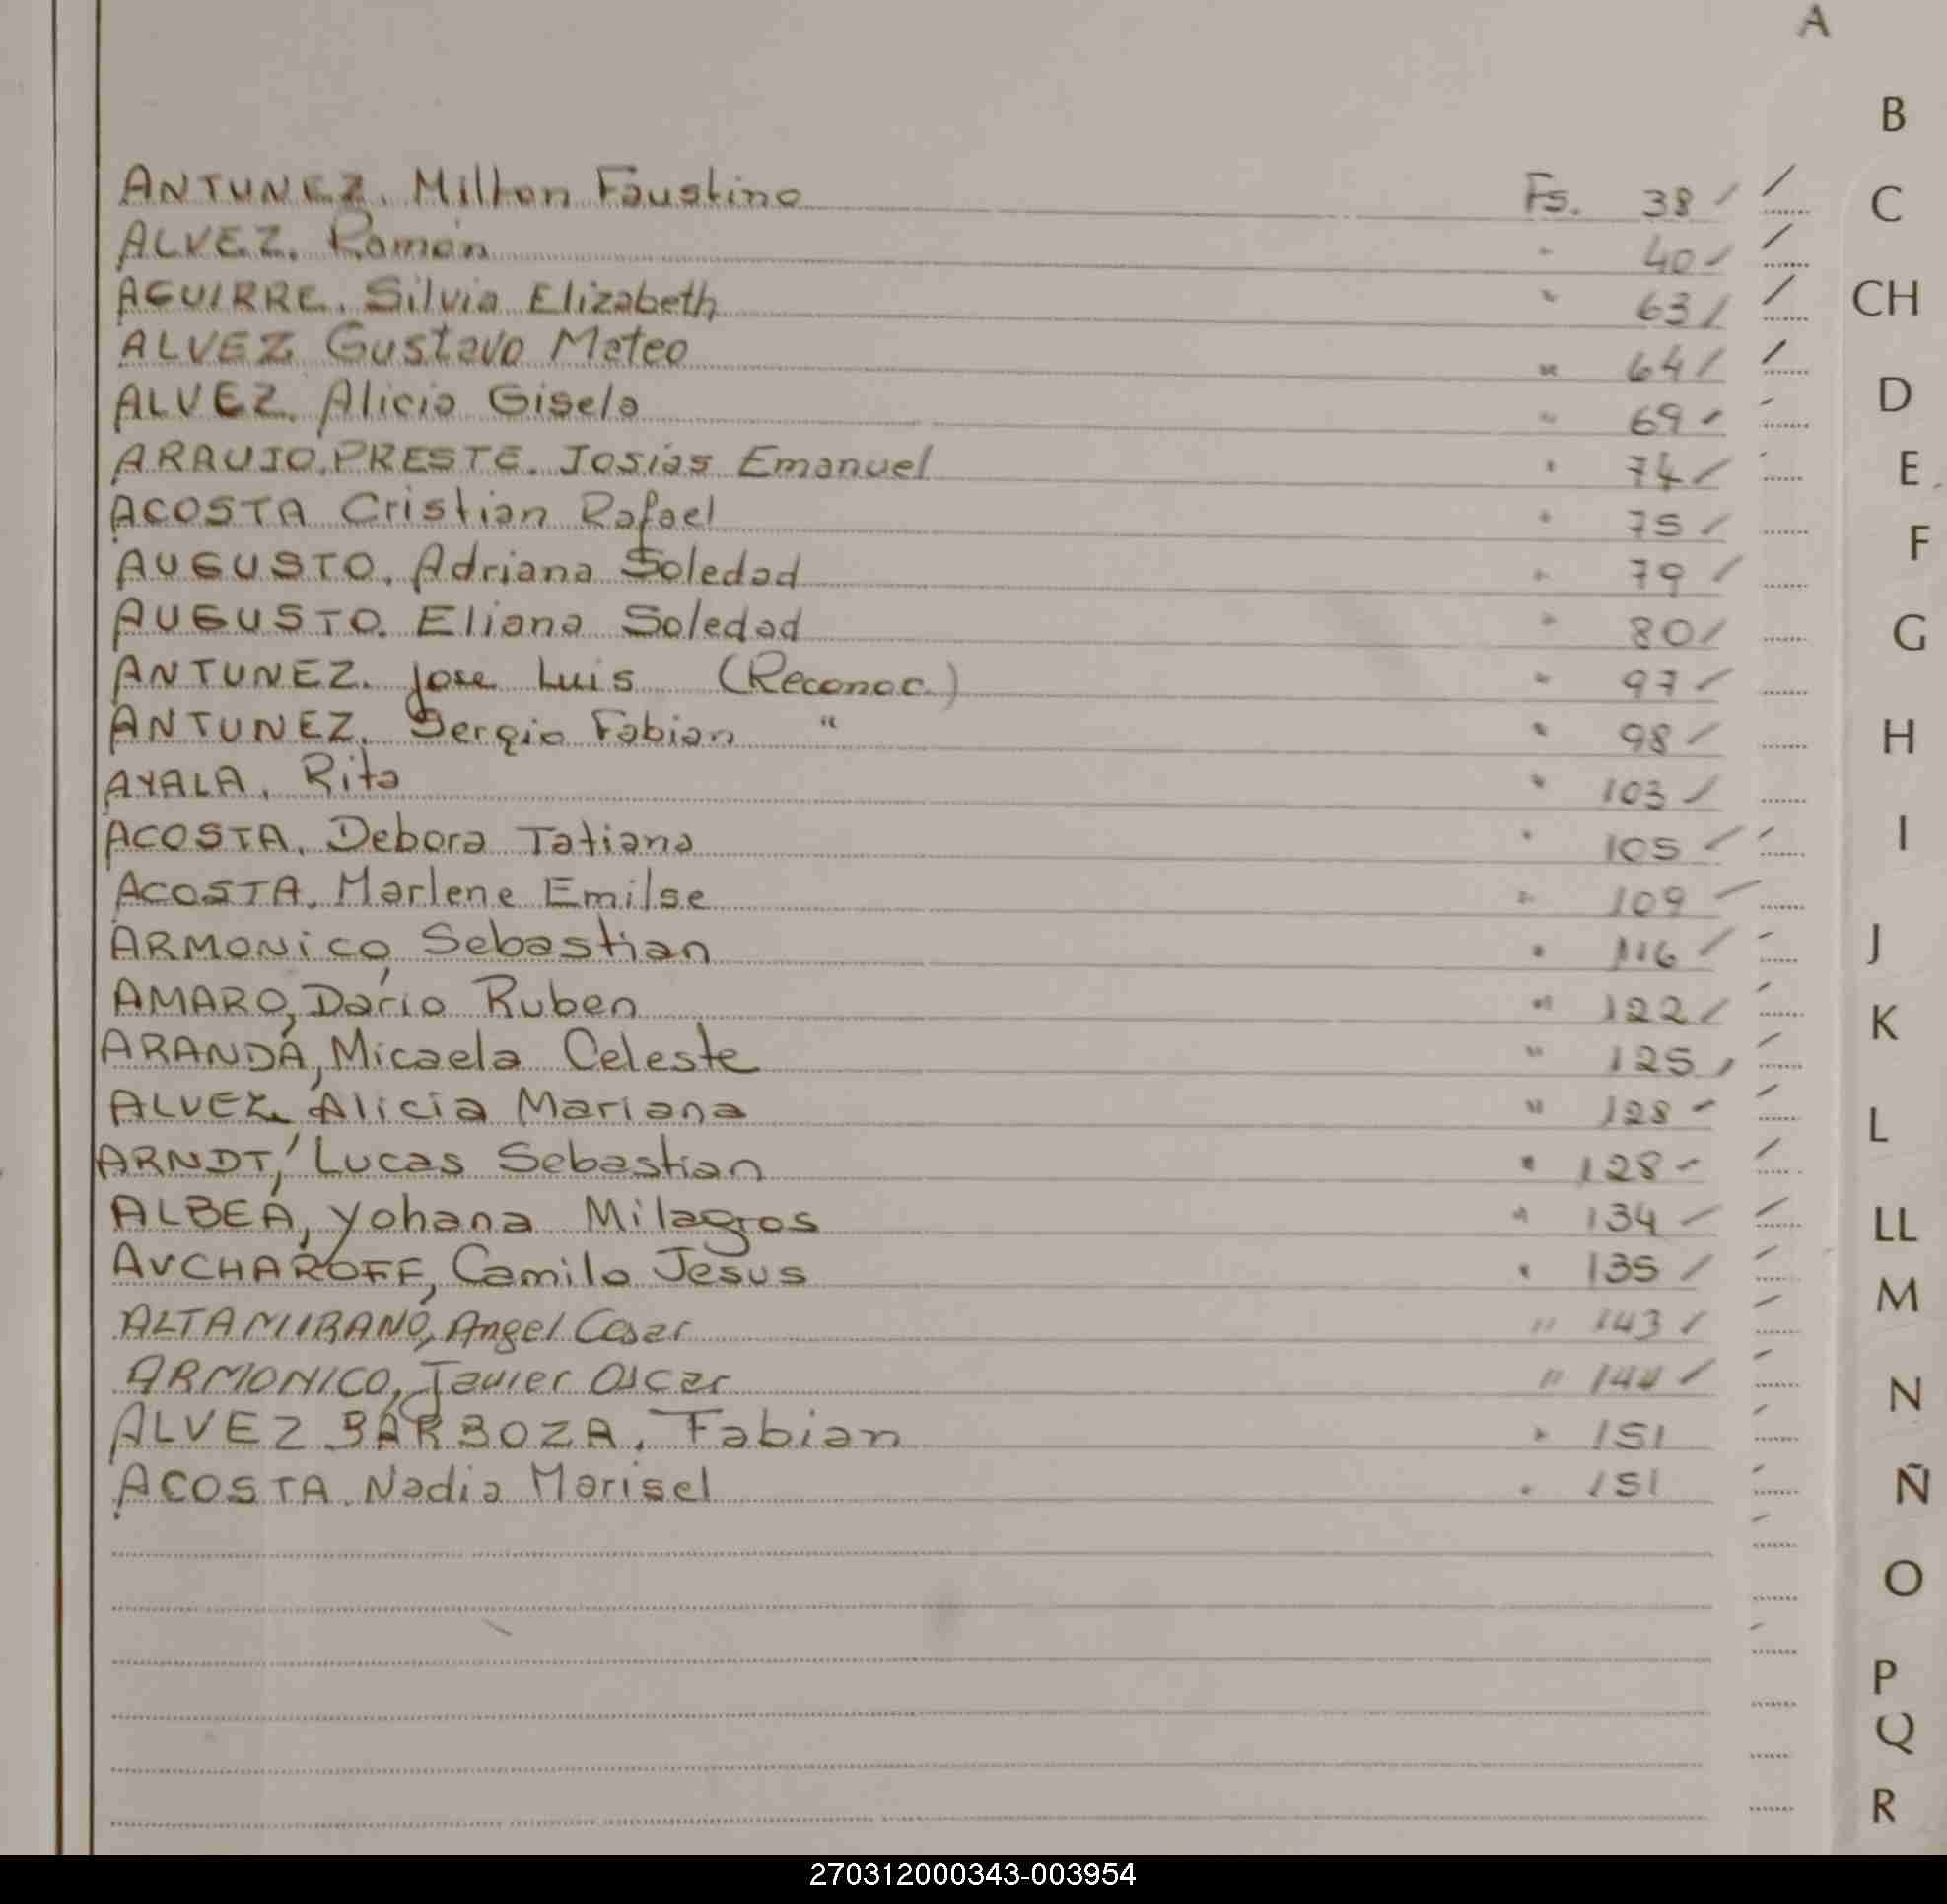 A
B
C
CH
D
E
F
G
H
I
J
K
L
LL
M
N
Ñ
O
P
Q
R
ANTUNEZ. Milton Faustino Fs. 38 /
ALVEZ. Ramón " 40 /
AGUIRRE. Silvia Elizabeth " 63 /
ALVEZ Gustavo Mateo " 64 /
ALVEZ. Alicia Gisela " 69 /
ARAUJO.PRESTE. Josias Emanuel " 74 /
ACOSTA Cristian Rafael " 75 /
AUGUSTO. Adriana Soledad " 79 /
AUGUSTO. Eliana Soledad " 80 /
ANTUNEZ. Jose Luis (Reconoc.) " 97 /
ANTUNEZ. Sergio Fabian " " 98 /
AYALA. Rita " 103 /
ACOSTA. Debora Tatiana " 105 /
ACOSTA. Marlene Emilse " 109 /
ARMONiCO, Sebastian " 116 /
AMARO, Dario Ruben " 122 /
ARANDA, Micaela Celeste " 125 /
ALVEZ, Alicia Mariana " 128 /
ARNDT, Lucas Sebastian " 128 /
ALBEA, Yohana Milagros " 134 /
AVCHAROFF, Camilo Jesus " 135 /
ALTAMIRANO, Angel Cesar " 143 /
ARMONICO, Javier Oscar " 144 /
ALVEZ BARBOZA. Fabian " 151
ACOSTA. Nadia Marisel " 151
270312000343-003954